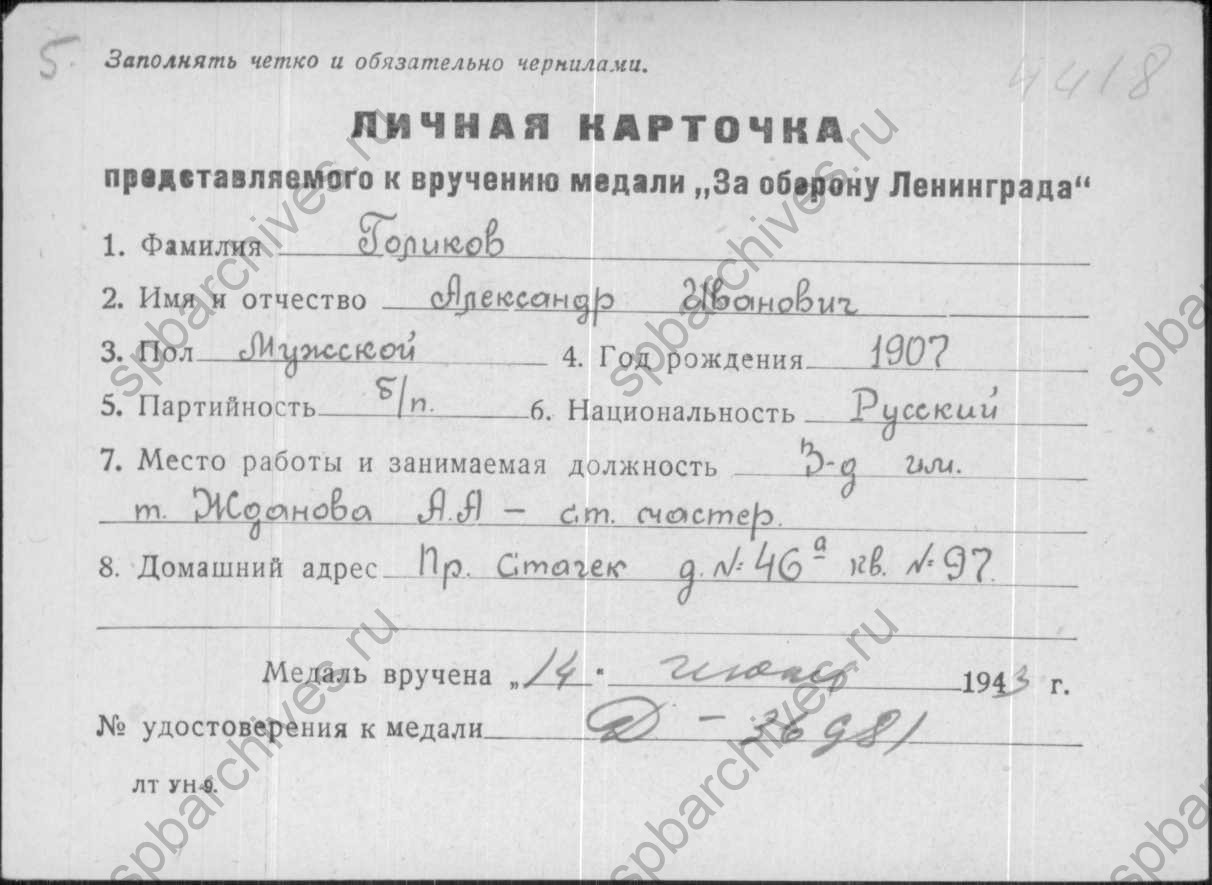 5.
Заполнять четко и обязательно чернилами.
4418
ЛИЧНАЯ КАРТОЧКА
представляемого к вручению медали „За оборону Ленинграда“
1. Фамилия Голиков
2. Имя и отчество Александр Иванович
3. Пол Мужской 4. Год рождения 1907
5. Партийность б/п. 6. Национальность Русский
7. Место работы и занимаемая должность З-д им.
т. Жданова А.А – ст. мастер.
8. Домашний адрес Пр. Стачек д. № 46а кв. № 97.
Медаль вручена „14“ 1943 г.
№ удостоверения к медали Д – 36981
ЛТ УН-9.
spbarchives.ru
spbarchives.ru
spbarchives.ru
spbarchives.ru